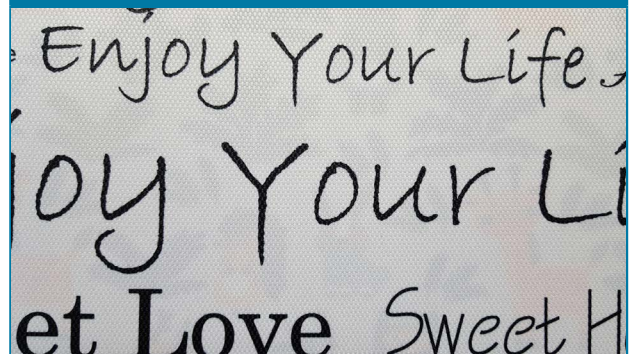 Enjoy Your Life
joy Your Li
et Love Sweet H